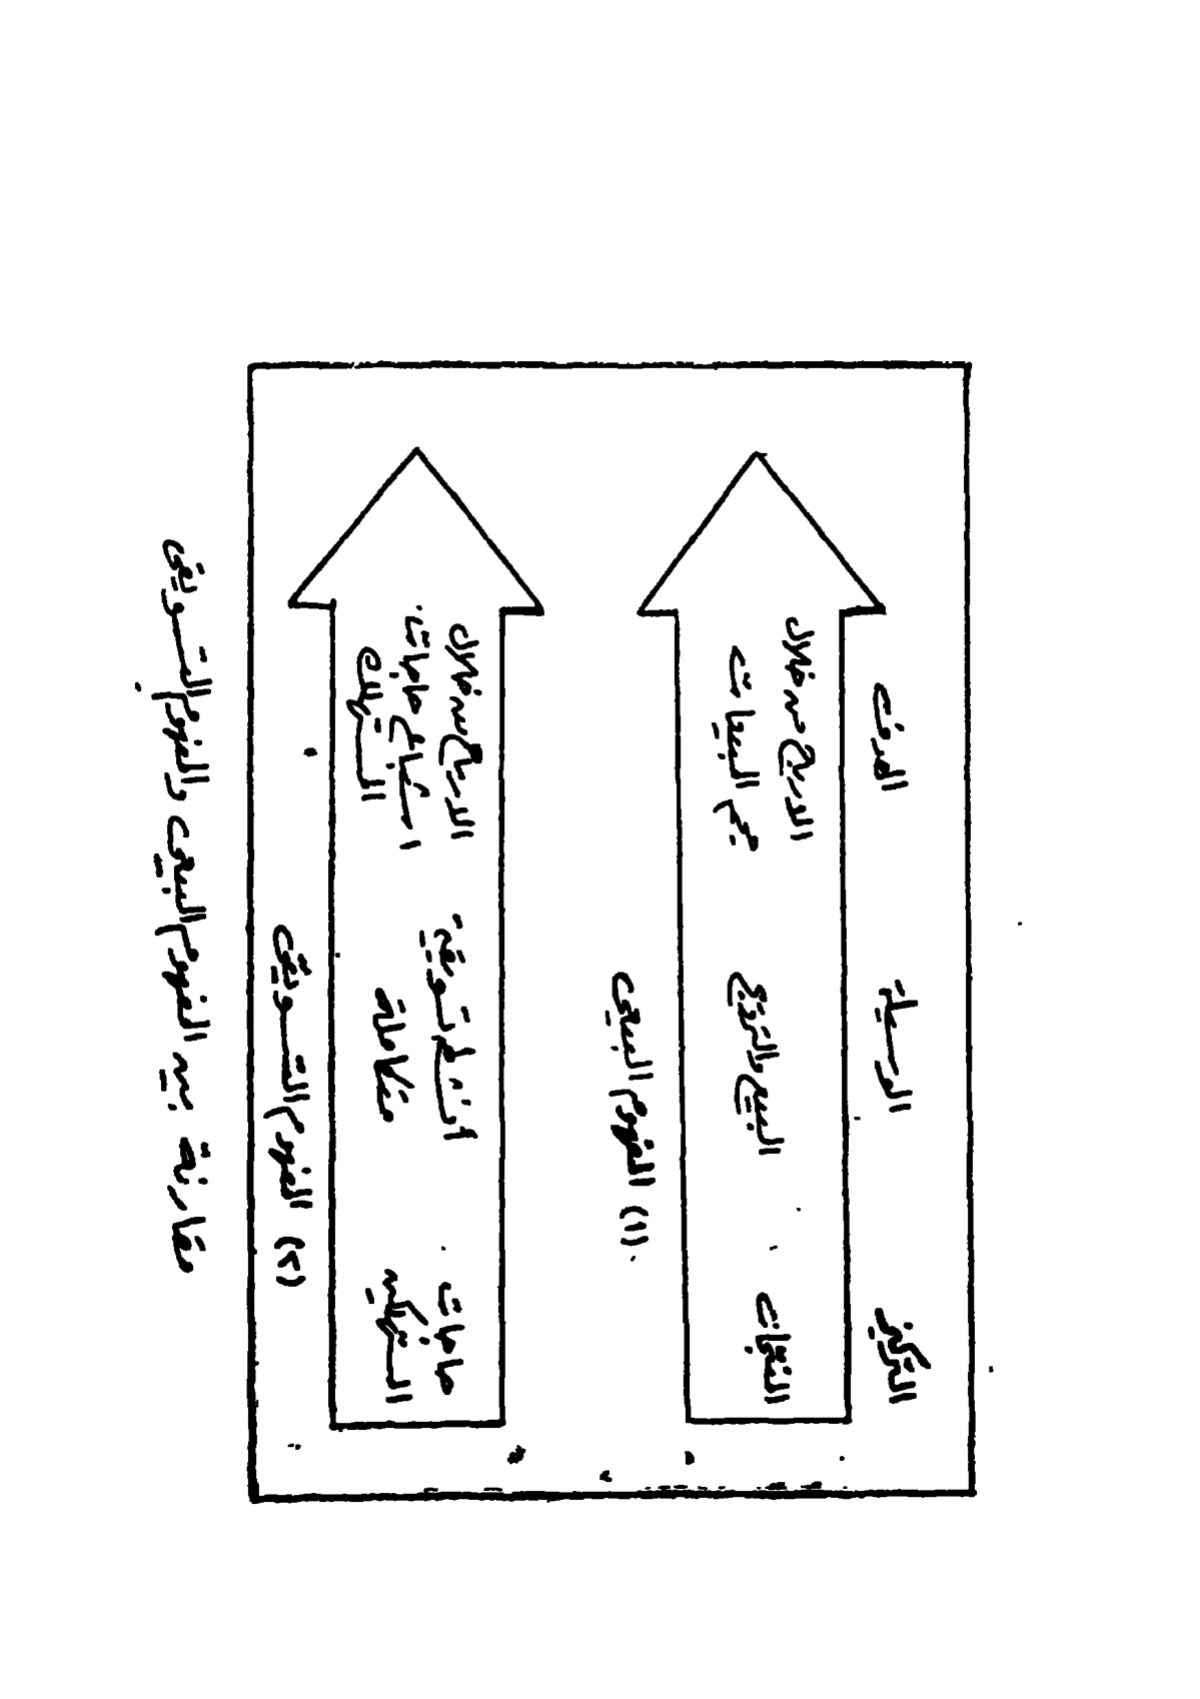 التركيز
الوسيلة
الهدف
المنتجات
البيع والترويج
الربح من خلال
حجم المبيعات
(١) المفهوم البيعى
حاجات
المستهلكين
أنشطة تسويقية
متكاملة
الارباح من خلال
اشباع حاجات
المستهلك
(٢) المفهوم التسويقى
مقارنة بين المفهوم البيعى والمفهوم التسويقى